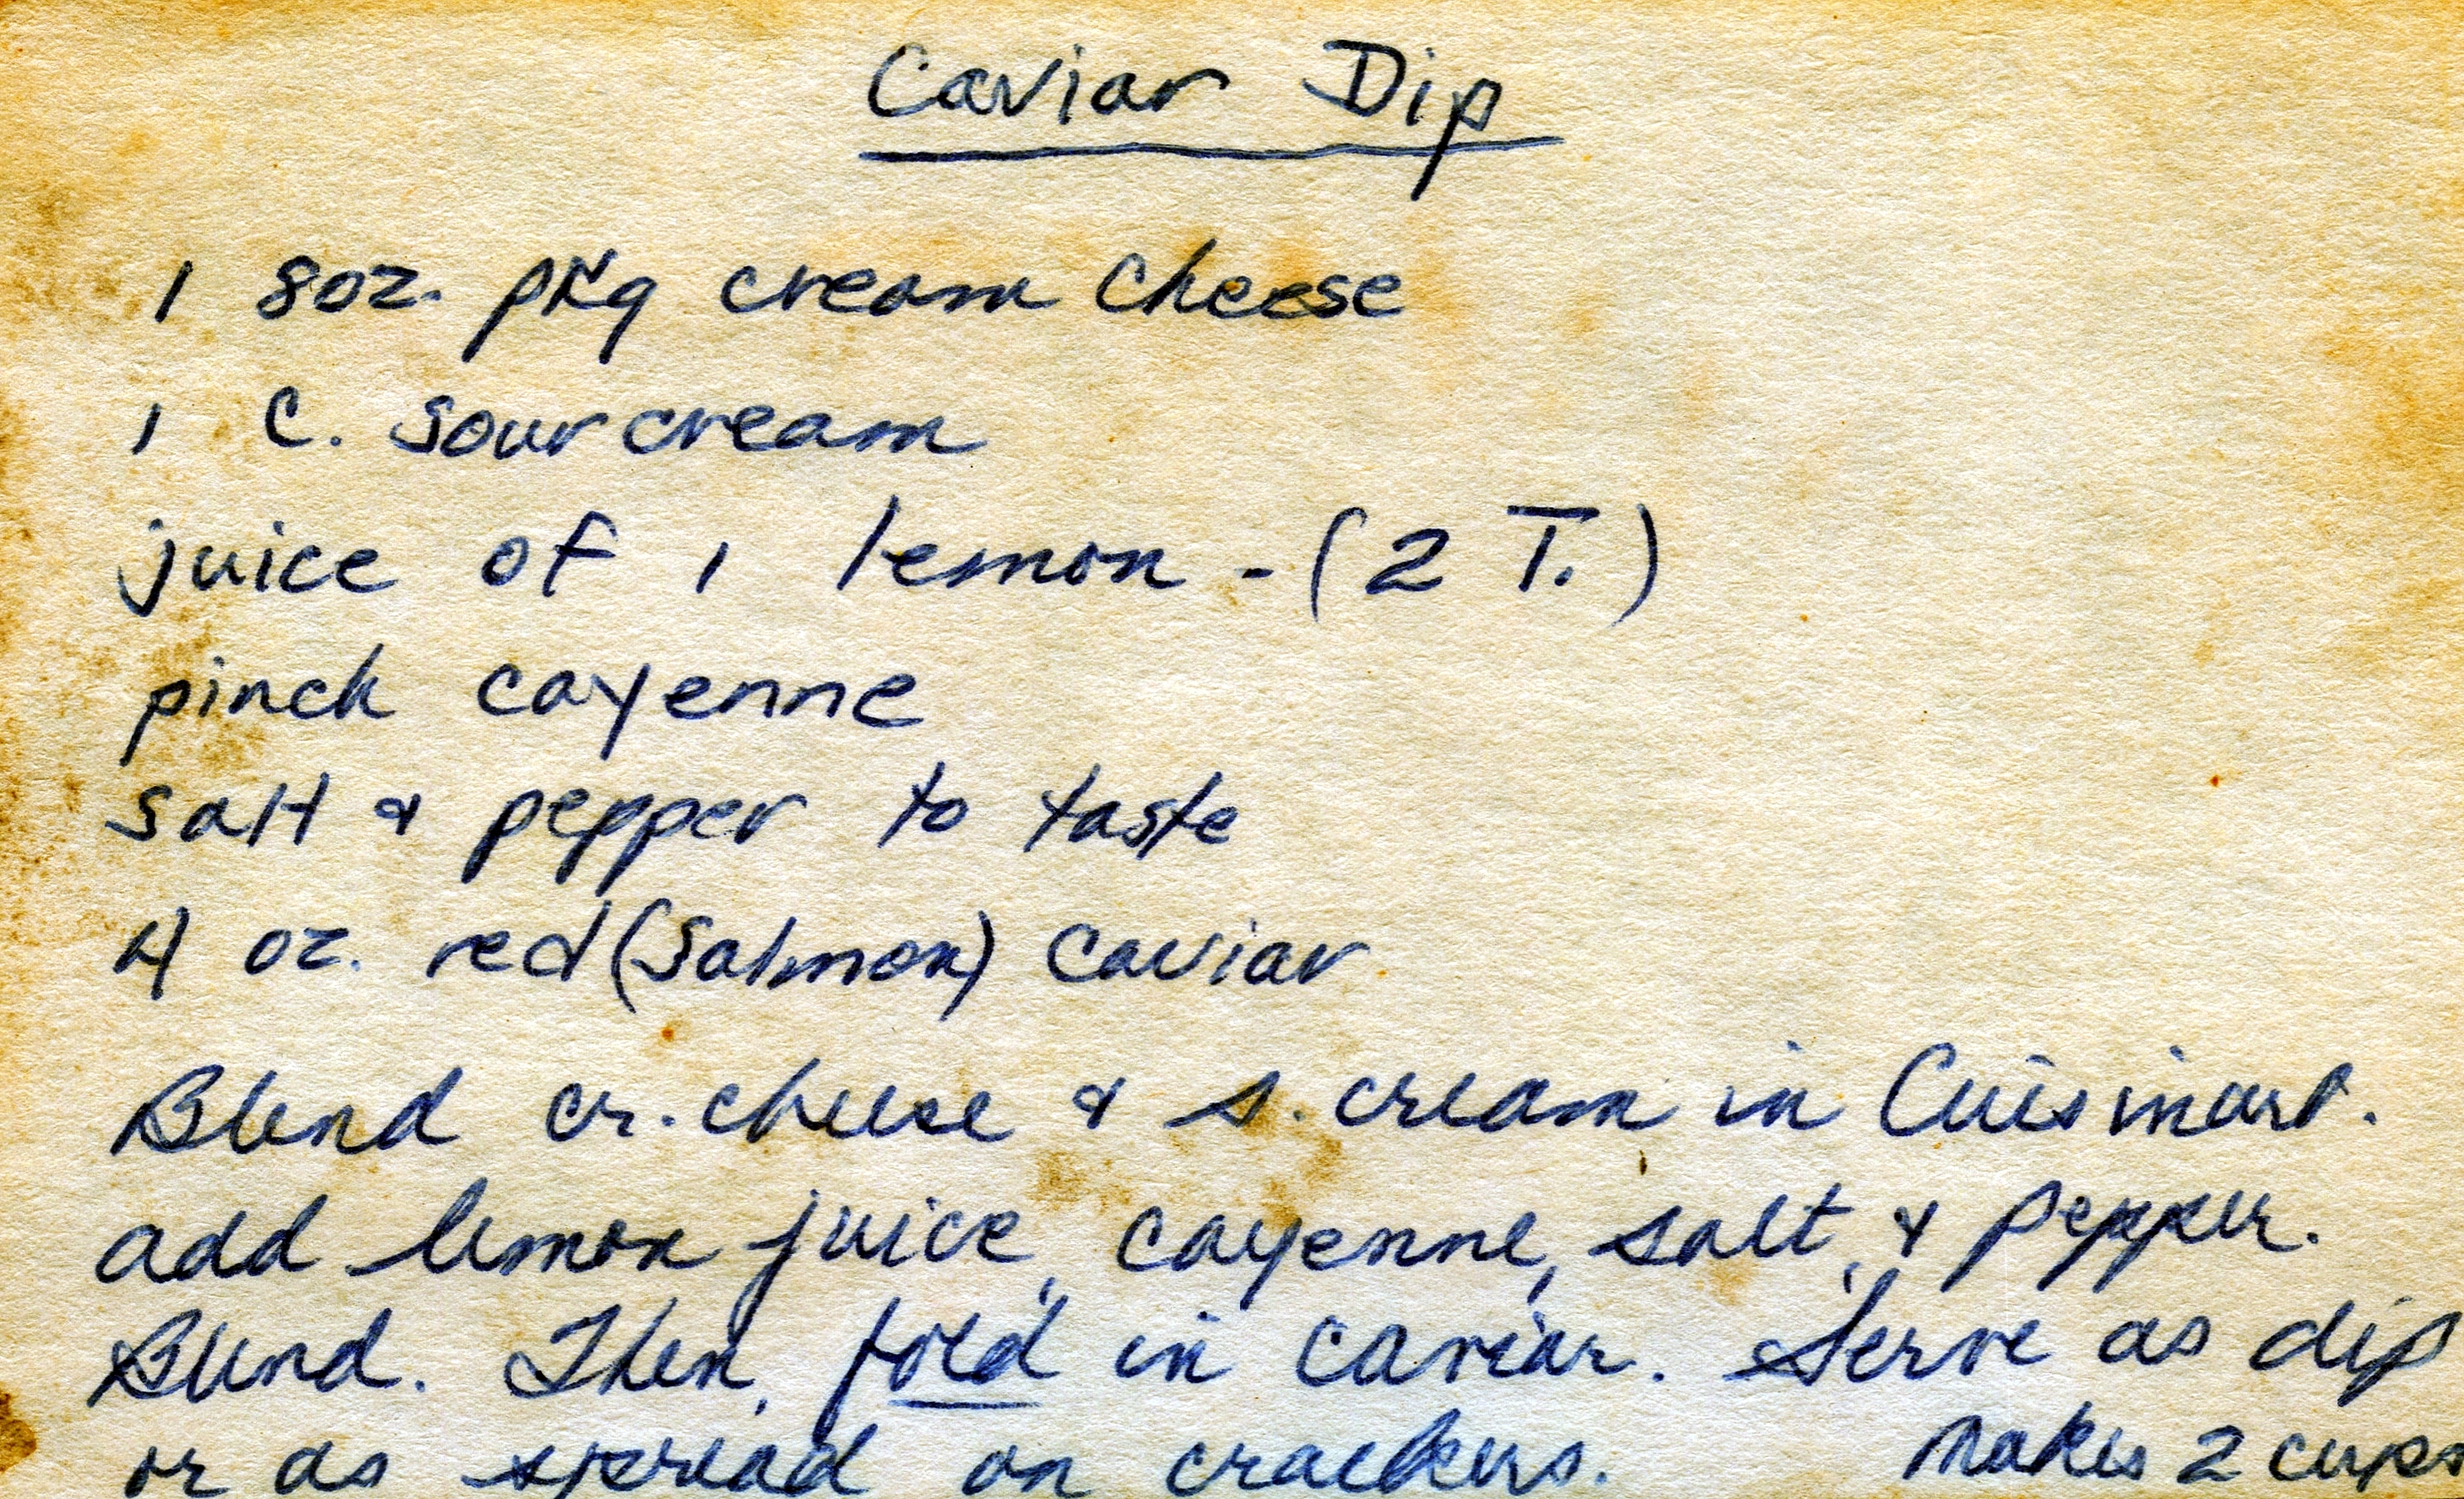 Caviar Dip
1 8oz. pkg cream cheese
1 C. sour cream
juice of 1 lemon - (2 T.)
pinch cayenne
salt & pepper to taste
4 oz. red (salmon) caviar
Blend cr. cheese & s. cream in Cuisinart.
add lemon juice, cayenne, salt, & pepper.
Blend. Then, fold in caviar. Serve as dip
or as spread on crackers. Makes 2 cups